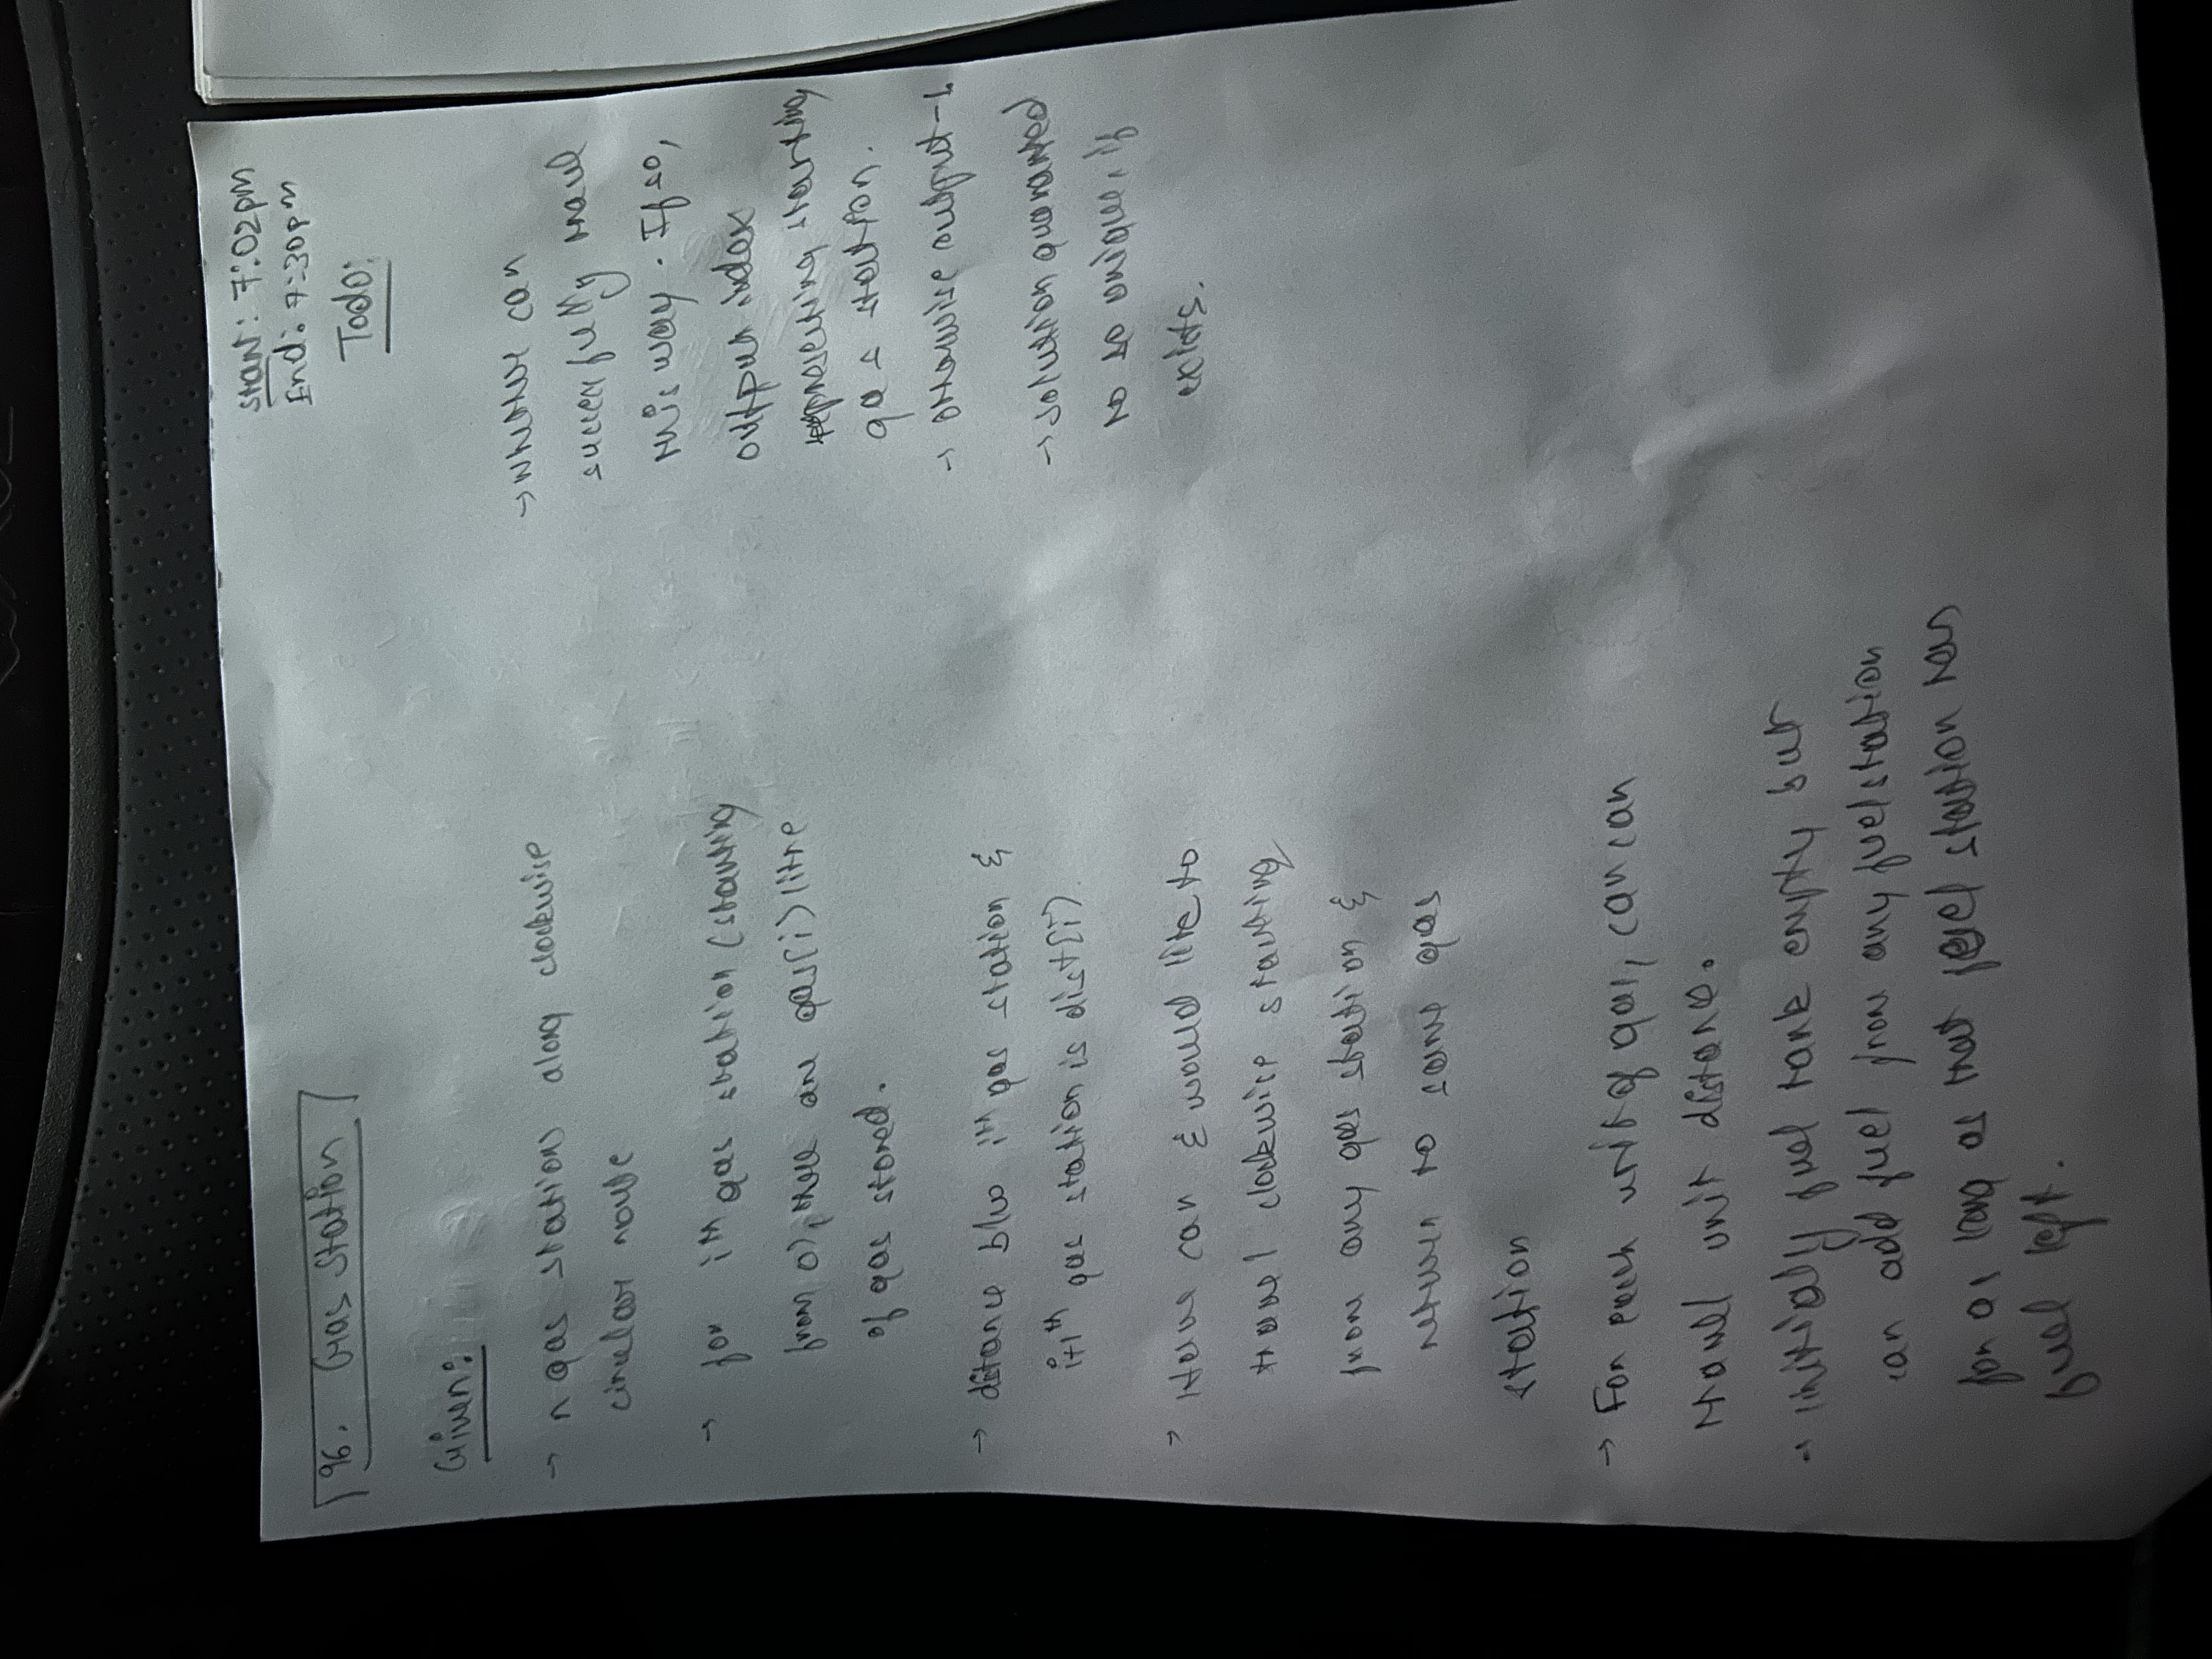 start: 7:02pm
End: 7:30pm
96. Gas Station
Todo:
Given:
→ n gas stations along clockwise
circular route
→ for ith gas station (starting
from 0), there are gas[i] litre
of gas stored.
→ distance b/w ith gas station &
i+1th gas station is dist[i].
→ Have car & would like to
travel clockwise starting
from any gas station &
return to same gas
station
→ For each unit of gas, car can
travel unit distance.
→ initially fuel tank empty but
can add fuel from any fuel station
for as long as that fuel station has
fuel left.
→ whether can
successfully travel
this way. If so,
output index
representing starting
gas station.
→ otherwise output -1.
→ solution guaranted
to so unique, if
exists.